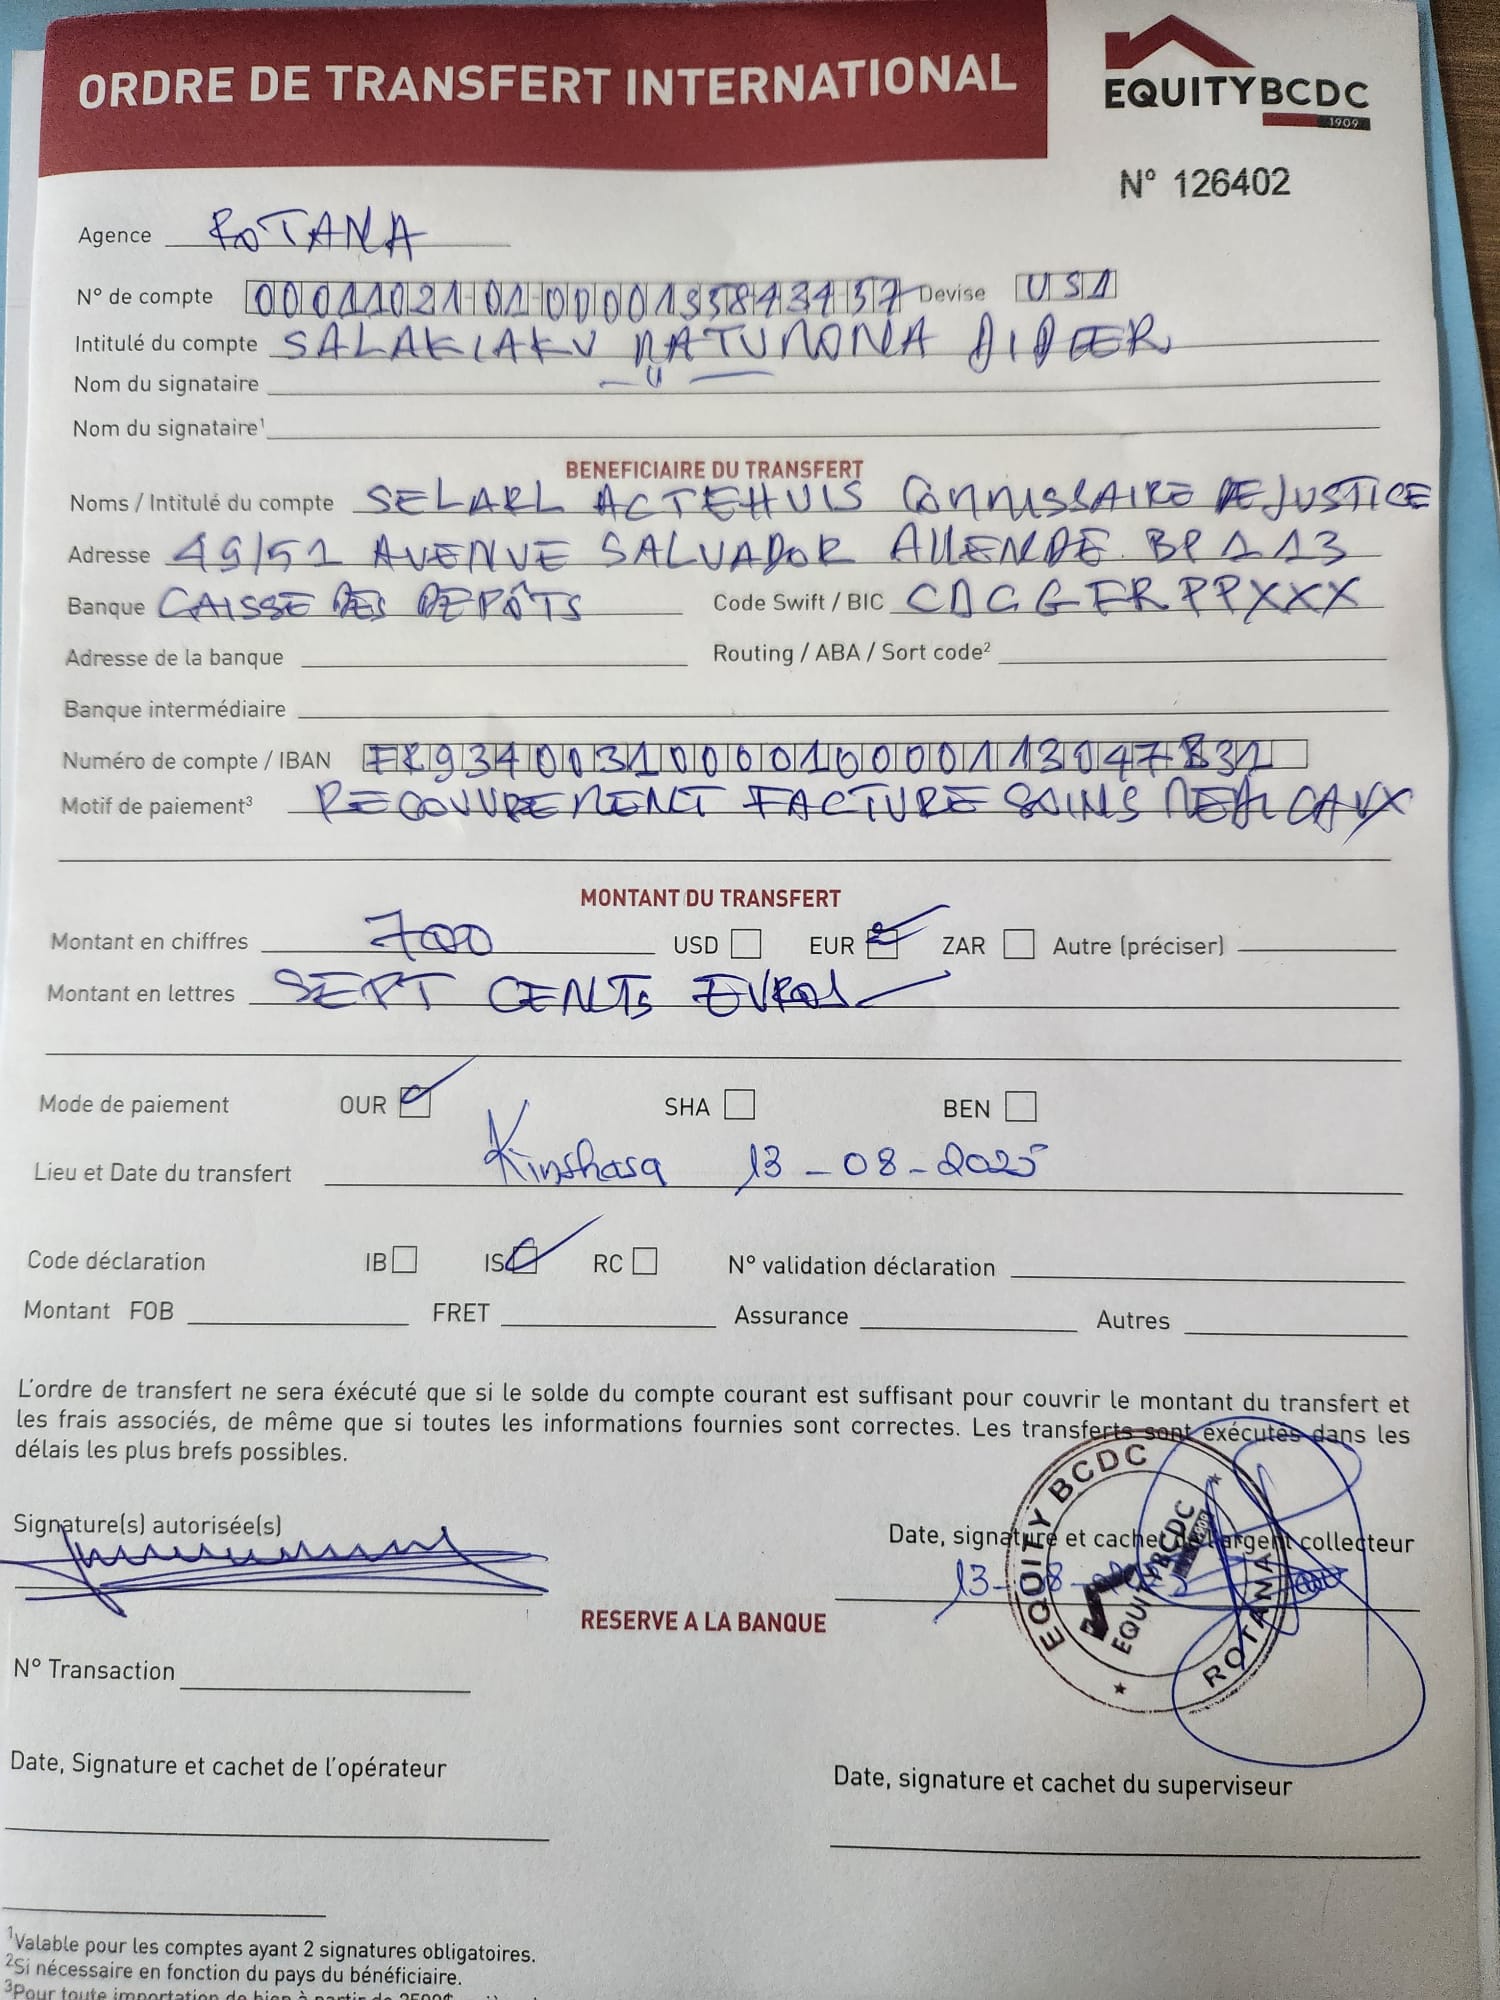 ORDRE DE TRANSFERT INTERNATIONAL
EQUITYBCDC
1909
N° 126402
Agence ROTANA
N° de compte 00011021-01-00001358434-57 Devise USD
Intitulé du compte SALAKIAKU MATUMONA DIDIER
Nom du signataire
Nom du signataire¹
BENEFICIAIRE DU TRANSFERT
Noms / Intitulé du compte SELARL ACTEHUIS COMMISSAIRE DE JUSTICE
Adresse 49/51 AVENUE SALVADOR ALLENDE BP 113
Banque CAISSE DES DEPÔTS Code Swift / BIC CDCGFRPPXXX
Adresse de la banque Routing / ABA / Sort code²
Banque intermédiaire
Numéro de compte / IBAN
Motif de paiement³ RECOUVREMENT FACTURE SOINS MEDICAUX
MONTANT DU TRANSFERT
Montant en chiffres 700 USD EUR ZAR Autre (préciser)
Montant en lettres SEPT CENTS EUROS
Mode de paiement OUR SHA BEN
Lieu et Date du transfert Kinshasa 13-08-2025
Code déclaration IB IS RC N° validation déclaration
Montant FOB FRET Assurance Autres
L'ordre de transfert ne sera éxécuté que si le solde du compte courant est suffisant pour couvrir le montant du transfert et
les frais associés, de même que si toutes les informations fournies sont correctes. Les transferts sont exécutés dans les
délais les plus brefs possibles.
Signature(s) autorisée(s)
Date, signature et cachet de l'argent collecteur
13-08-2025
EQUITY BCDC
EQUITYBCDC
ROTANA
RESERVE A LA BANQUE
N° Transaction
Date, Signature et cachet de l'opérateur
Date, signature et cachet du superviseur
¹Valable pour les comptes ayant 2 signatures obligatoires.
²Si nécessaire en fonction du pays du bénéficiaire.
³Pour toute importation de bien à partir de 2500$